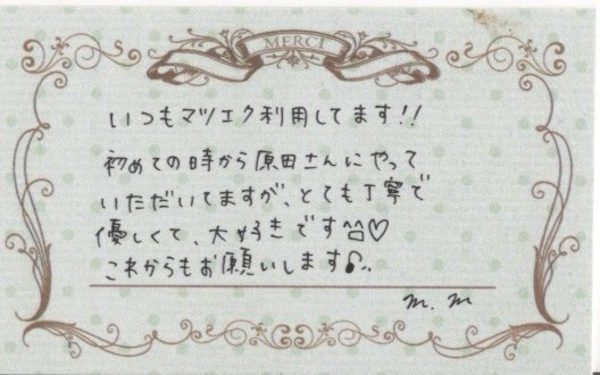 MERCI
いつもマツエク利用してます!!
初めての時から原田さんにやって
いただいてますが、とても丁寧で
優しくて、大好きです^^♡
これからもお願いします♪..
m.m